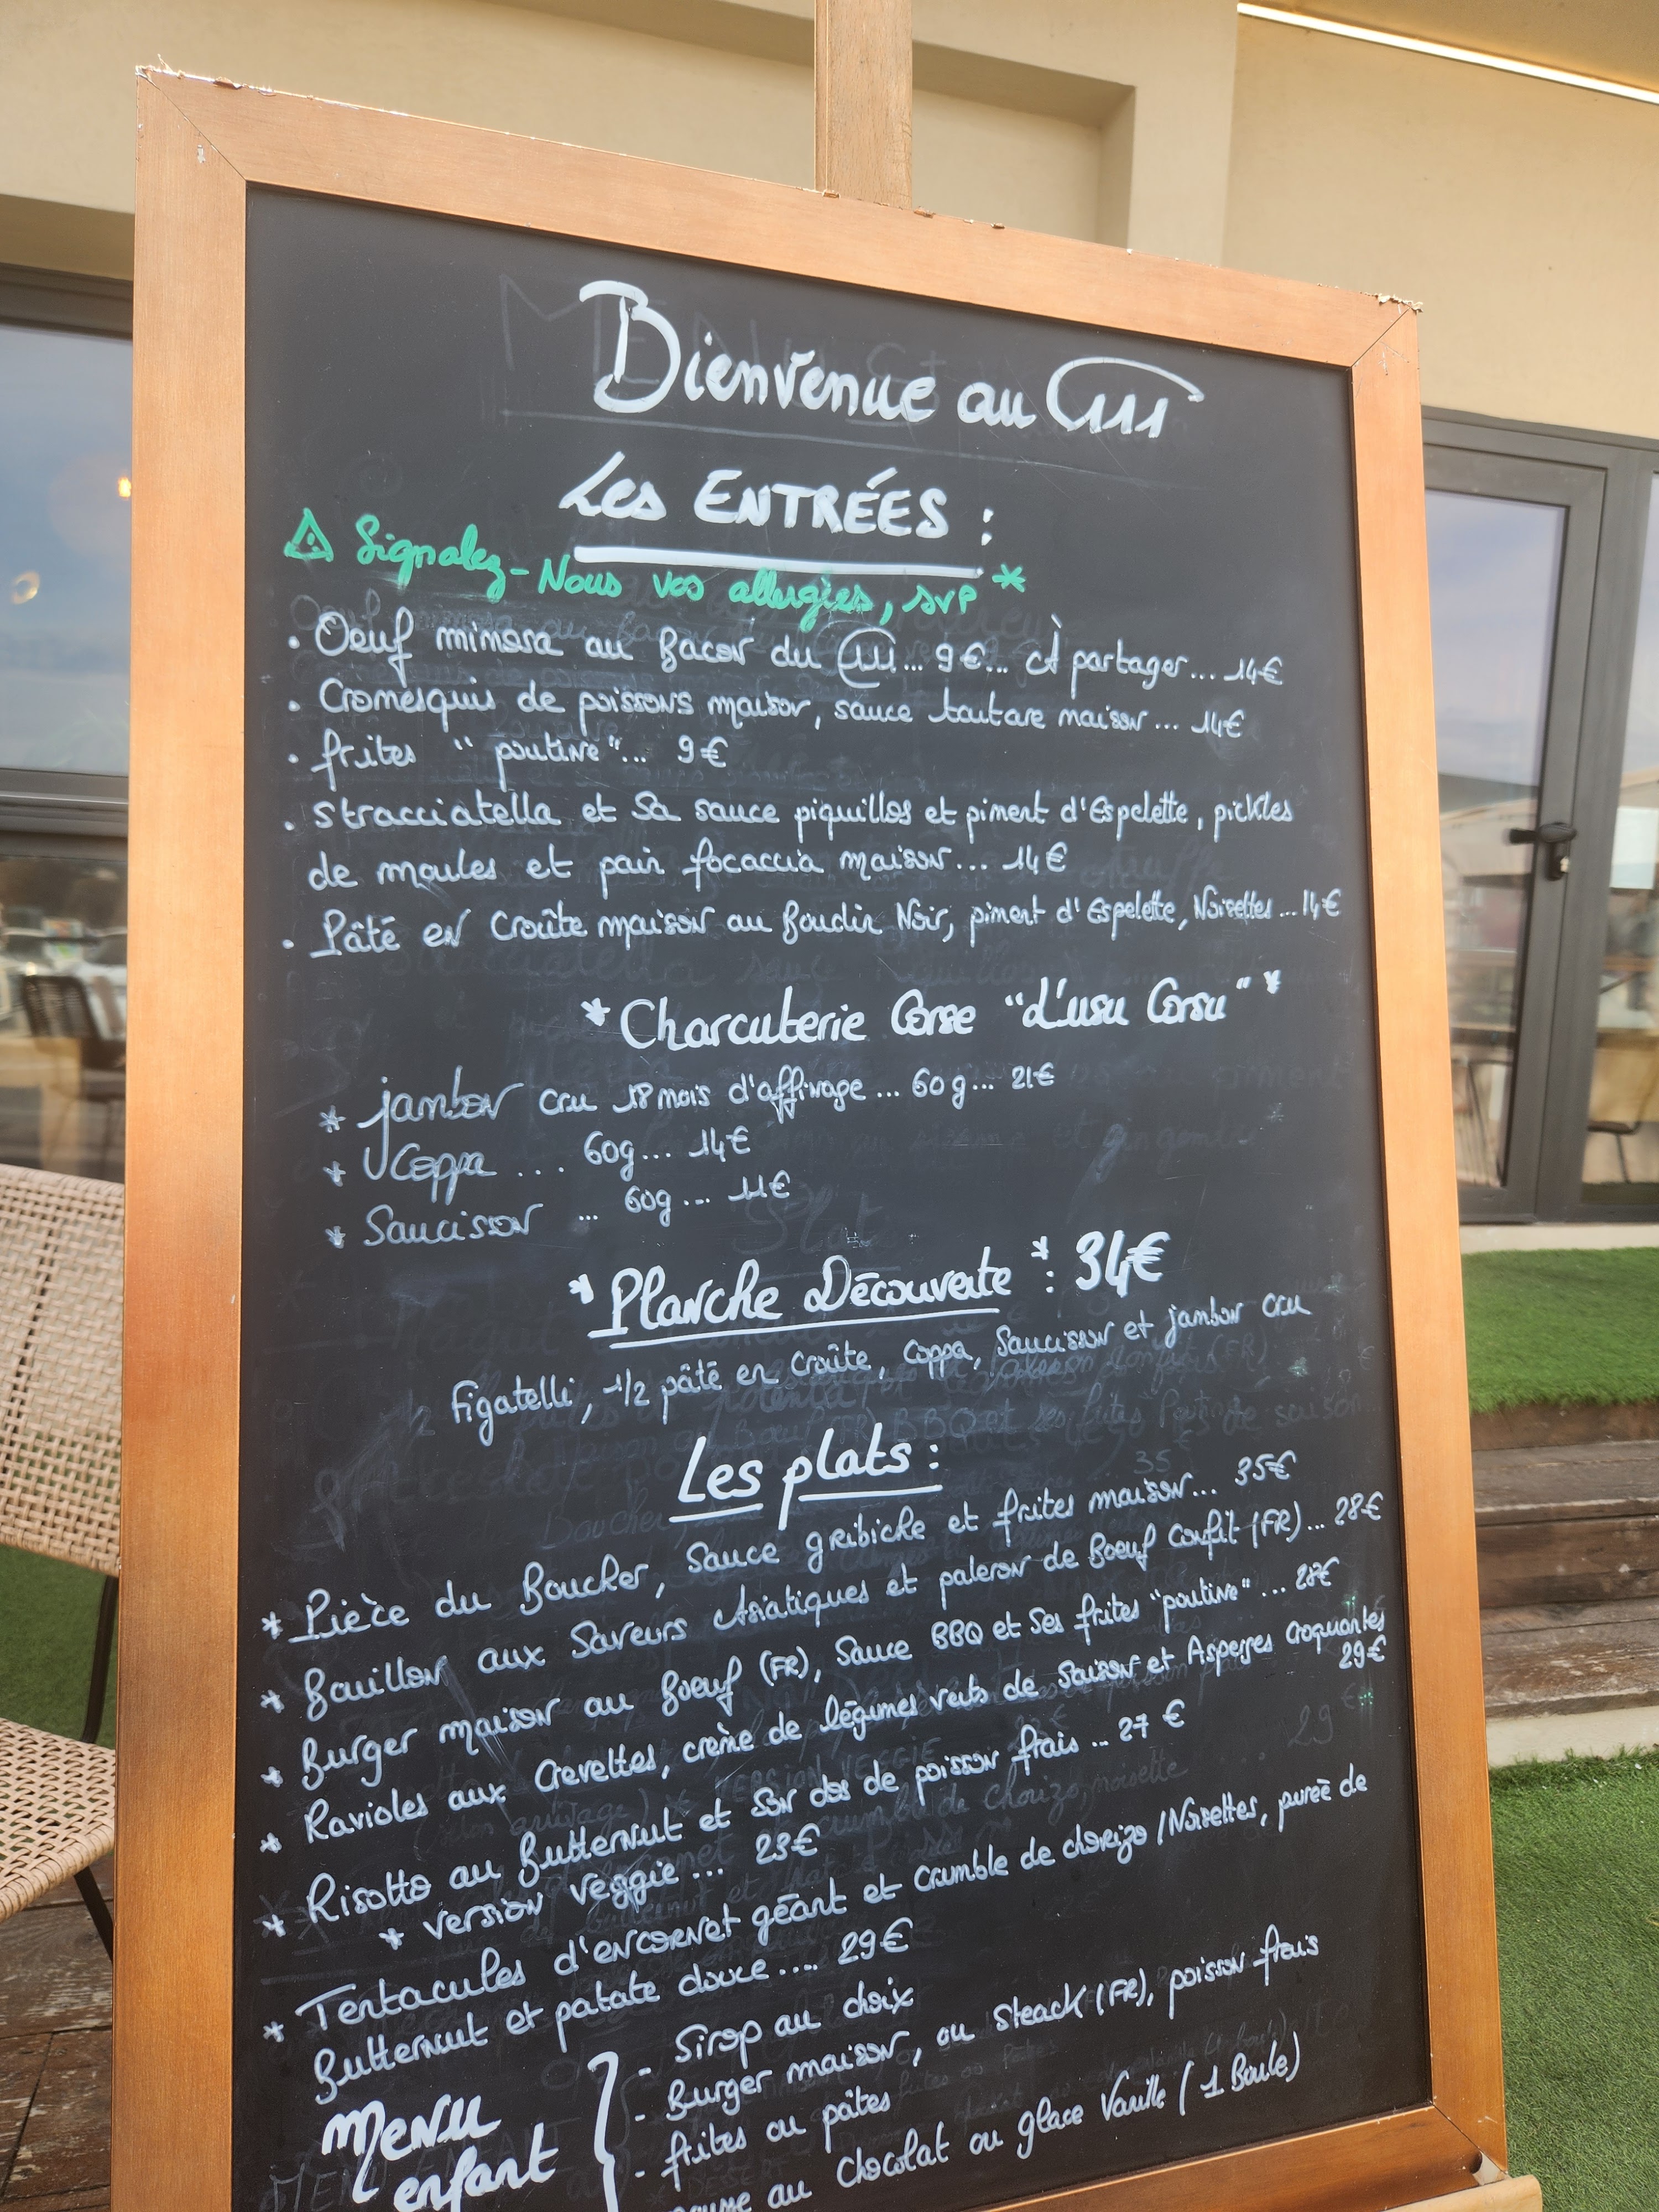 Bienvenue au
Les ENTRÉES :
⚠ Signalez-Nous vos allergies, SVP *
• Oeuf mimosa au Bacon du ... 9€... À partager... 14€
• Cromesquis de poissons maison, sauce tartare maison... 14€
• frites " poutine"... 9€
• Stracciatella et Sa sauce piquillos et piment d'Espelette, pickles
de moules et pain focaccia maison... 14€
• Pâté en Croûte maison au Boudin Noir, piment d'Espelette, Noisettes... 14€
*Charcuterie Corse "d'usu Corsu"*
* jambon cru 18 mois d'affinage... 60g... 21€
* Coppa ... 60g... 14€
* Saucisson ... 60g... 11€
*Planche Découverte*: 34€
figatelli, 1/2 pâté en Croûte, Coppa, Saucisson et jambon cru
Les plats :
* Pièce du Boucher, Sauce gribiche et frites maison... 35€
* Bouillon aux Saveurs Asiatiques et paleron de Boeuf Confit (FR)... 28€
* Burger maison au Boeuf (FR), Sauce BBQ et Ses frites "poutine"... 28€
* Ravioles aux Crevettes, crème de légumes verts de Saison et Asperges Croquantes
29€
* Risotto au Butternut et Son dos de poisson frais ... 27 €
* version veggie... 23€
* Tentacules d'encornet géant et Crumble de chorizo / Noisettes, purée de
Butternut et patate douce.... 29€
Menu enfant
- Sirop au choix
- Burger maison, ou Steack (FR), poisson frais
- frites ou pâtes
au Chocolat ou glace Vanille (1 Boule)